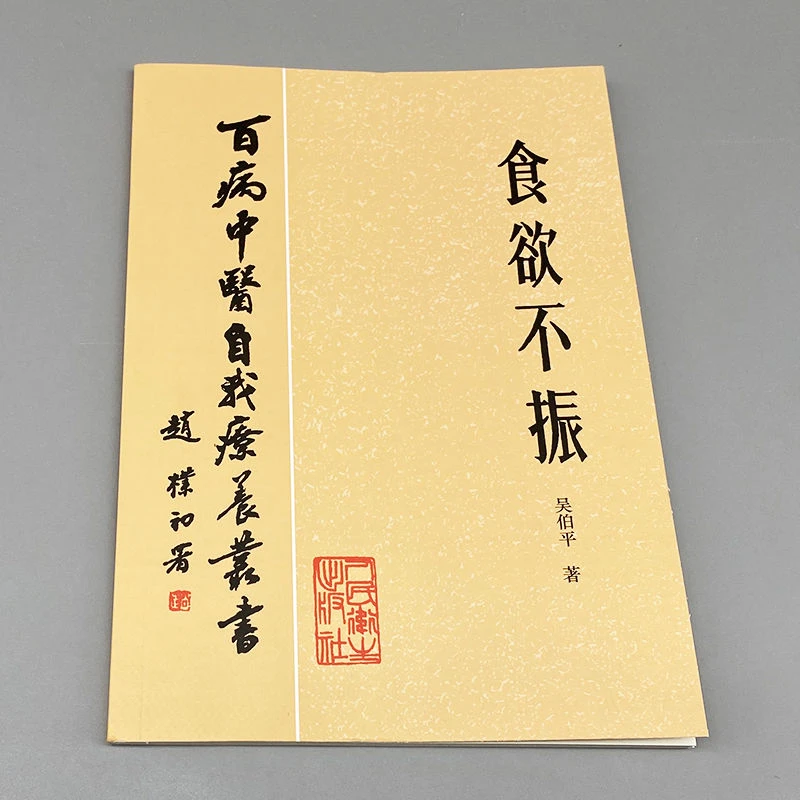 食欲不振
吴伯平 著
百病中醫自我療養叢書
趙樸初署
人民衛生
出版社